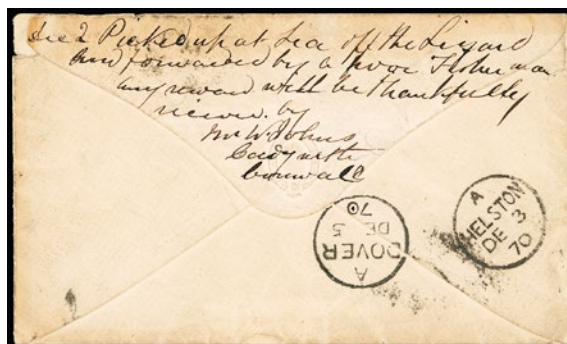 Dec 2 Picked up at Sea off the Lizard
and forwarded by a poor Fisherman
any reward will be thankfully
receive. by
Mr W. Johns
Cadgwith
Cornwall
A
DOVER
DE 5
70
A
HELSTON
DE 3
70